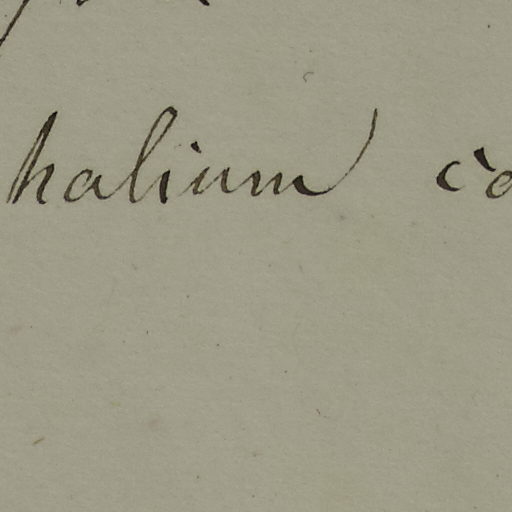 halium co